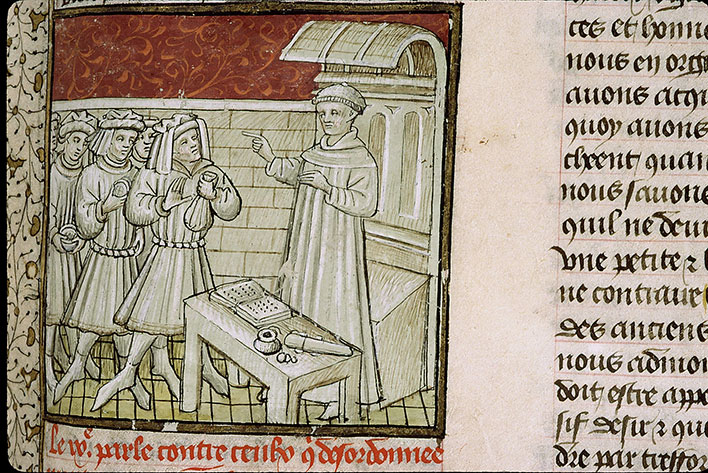 le vᵉ parle contre ceulx q̃ desordonnee
ces et honne
nous en orgu
auons acqu
quoy auons
cheent quan
nous sauons
quil ne deui
vne petite ⁊
ne contraue
des anciens
nous admon
doit estre appe
sif desir ⁊ que
dre par tresfor